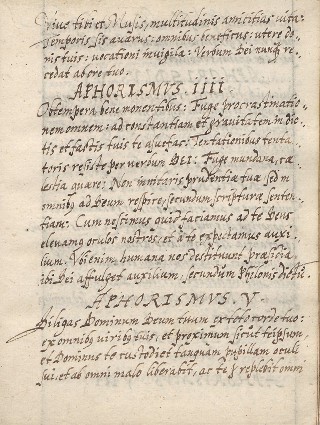 Vive tibi et Musis, multitudinis amicitias vita:
Temporis sis avarus: omnibus beneficus: utere do
nis tuis: vocationi invigila: Verbum Dei nunq re
cedat ab ore tuo.
APHORISMVS. IIII.
Obtempera bene monentibus: Fuge procrastinatio
nem omnem: ad constantiam et gravitatem in dic
tis et factis tuis te assuefac: Tentationibus tenta
toris resiste per verbum DEI: Fuge mundana, cæ
lestia quære: Non innitaris prudentiæ tuæ sed in
omnibq ad Deum respice, secundum scripturæ senten
tiam: Cum nescimus quid faciamus ad te Deus
elevamq oculos nostros, et a te expectamus auxi
lium. Vbi enim humana nos destituunt præsidia
ibi Dei affulget auxilium, secundum Philonis dictū.
APHORISMVS. V.
Diligas Dominum Deum tuum ex toto corde tuo:
ex omnibq viribq tuis, et proximum sicut teipsum
et Dominus te custodiet tanquam pupillam oculi
sui, et ab omni malo liberabit, ac te replebit omni